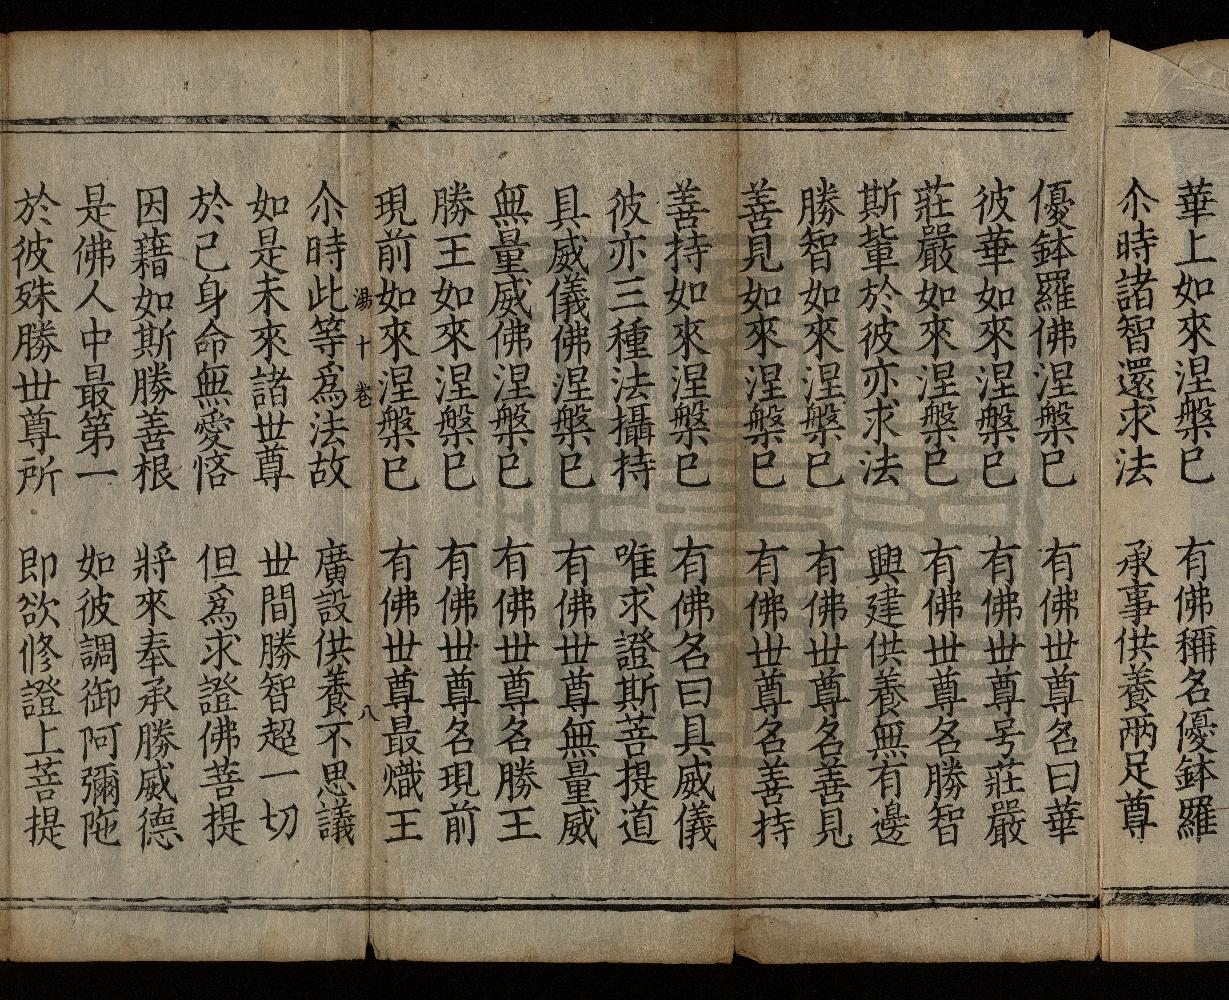 華上如來涅槃已　有佛稱名優鉢羅
尒時諸智還求法　承事供養兩足尊
優鉢羅佛涅槃已　有佛世尊名曰華
彼華如來涅槃已　有佛世尊号莊嚴
莊嚴如來涅槃已　有佛世尊名勝智
斯輩於彼亦求法　興建供養無有邊
勝智如來涅槃已　有佛世尊名善見
善見如來涅槃已　有佛世尊名善持
善持如來涅槃已　有佛名曰具威儀
彼亦三種法攝持　唯求證斯菩提道
具威儀佛涅槃已　有佛世尊無量威
無量威佛涅槃已　有佛世尊名勝王
勝王如來涅槃已　有佛世尊名現前
現前如來涅槃已　有佛世尊最熾王
湯十卷　八
尒時此等爲法故　廣設供養不思議
如是未來諸世尊　世間勝智超一切
於己身命無愛悋　但爲求證佛菩提
因藉如斯勝善根　將來奉承勝威德
是佛人中最第一　如彼調御阿彌陁
於彼殊勝世尊所　即欲修證上菩提